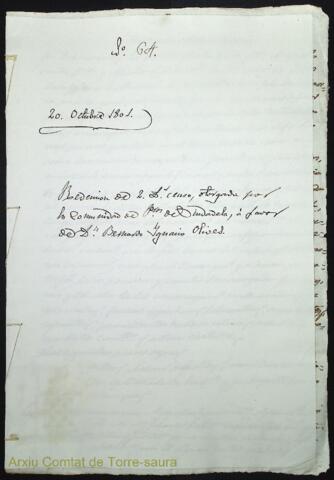 Nº. 64.
20. Octubre 1801.
Redension de 2. Ls. censo, otorgada por
la Comunidad de Pros. de Ciudadela, à favor
de Dn. Bernardo Ygnacio Olives.
Arxiu Comtat de Torre-saura